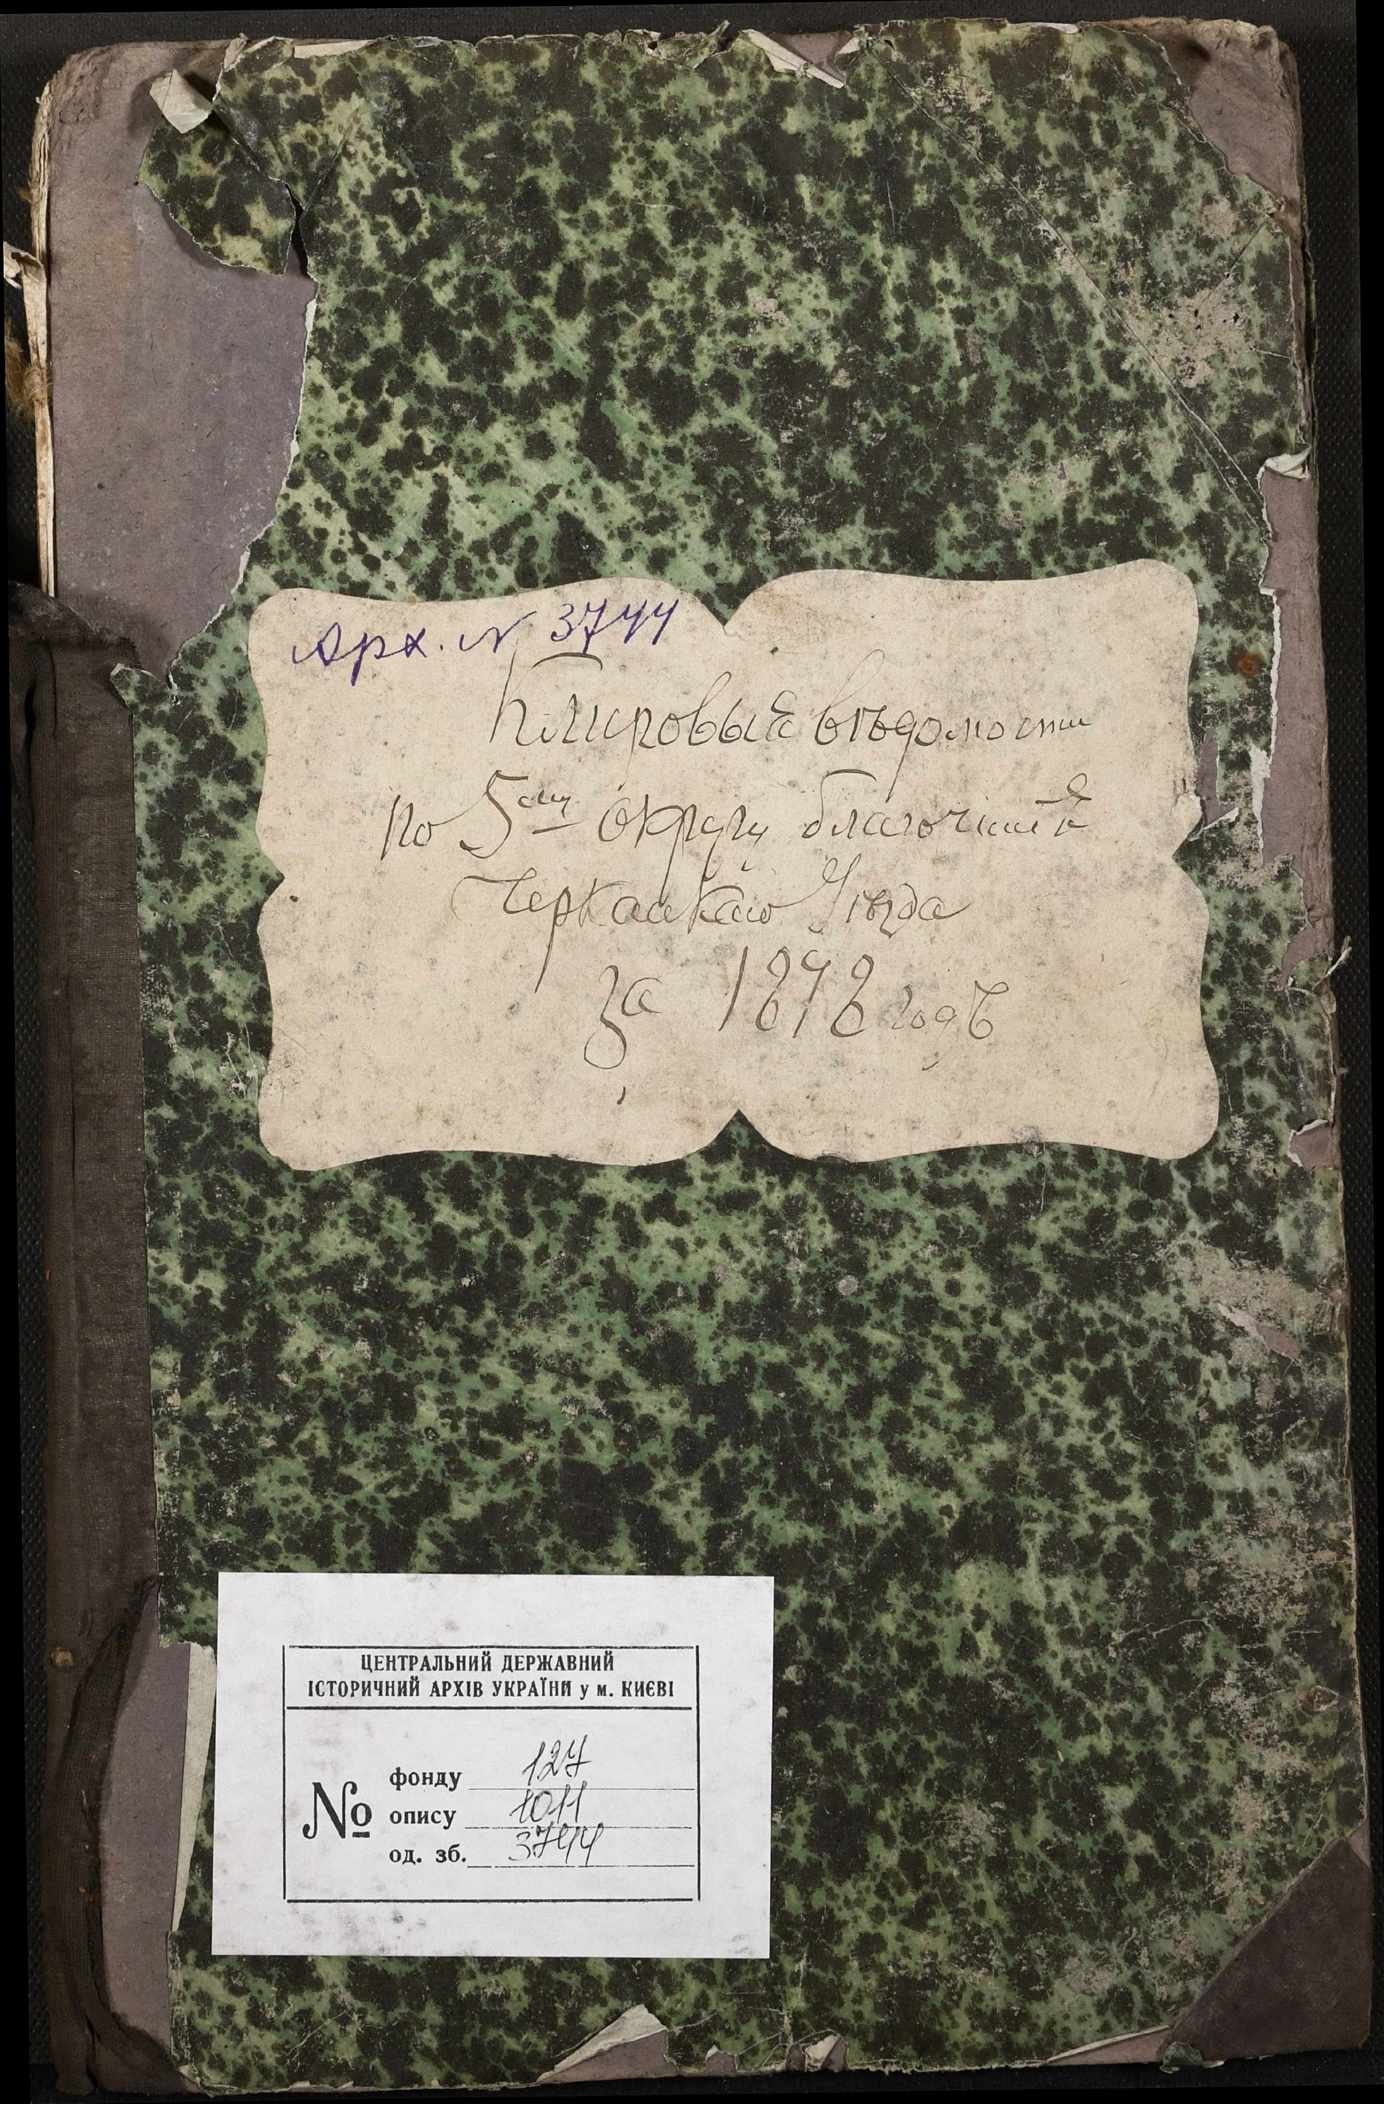 Арх. № 3744
Клировыя вѣдомости
по 5му округу благочинія
Черкаскаго Уѣзда
за 1898 годъ
ЦЕНТРАЛЬНИЙ ДЕРЖАВНИЙ
ІСТОРИЧНИЙ АРХІВ УКРАЇНИ у м. КИЄВІ
№ фонду 127
опису 1011
од. зб. 3744